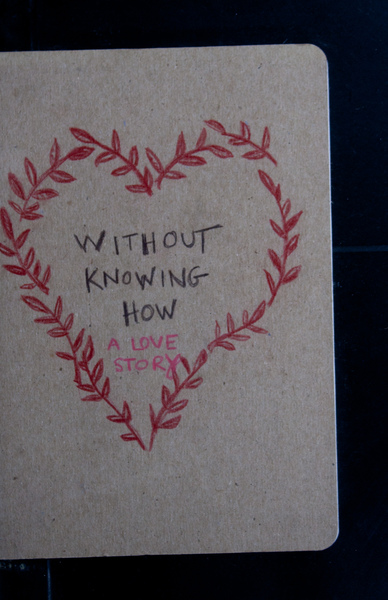 WITHOUT
KNOWING
HOW
A LOVE
STORY